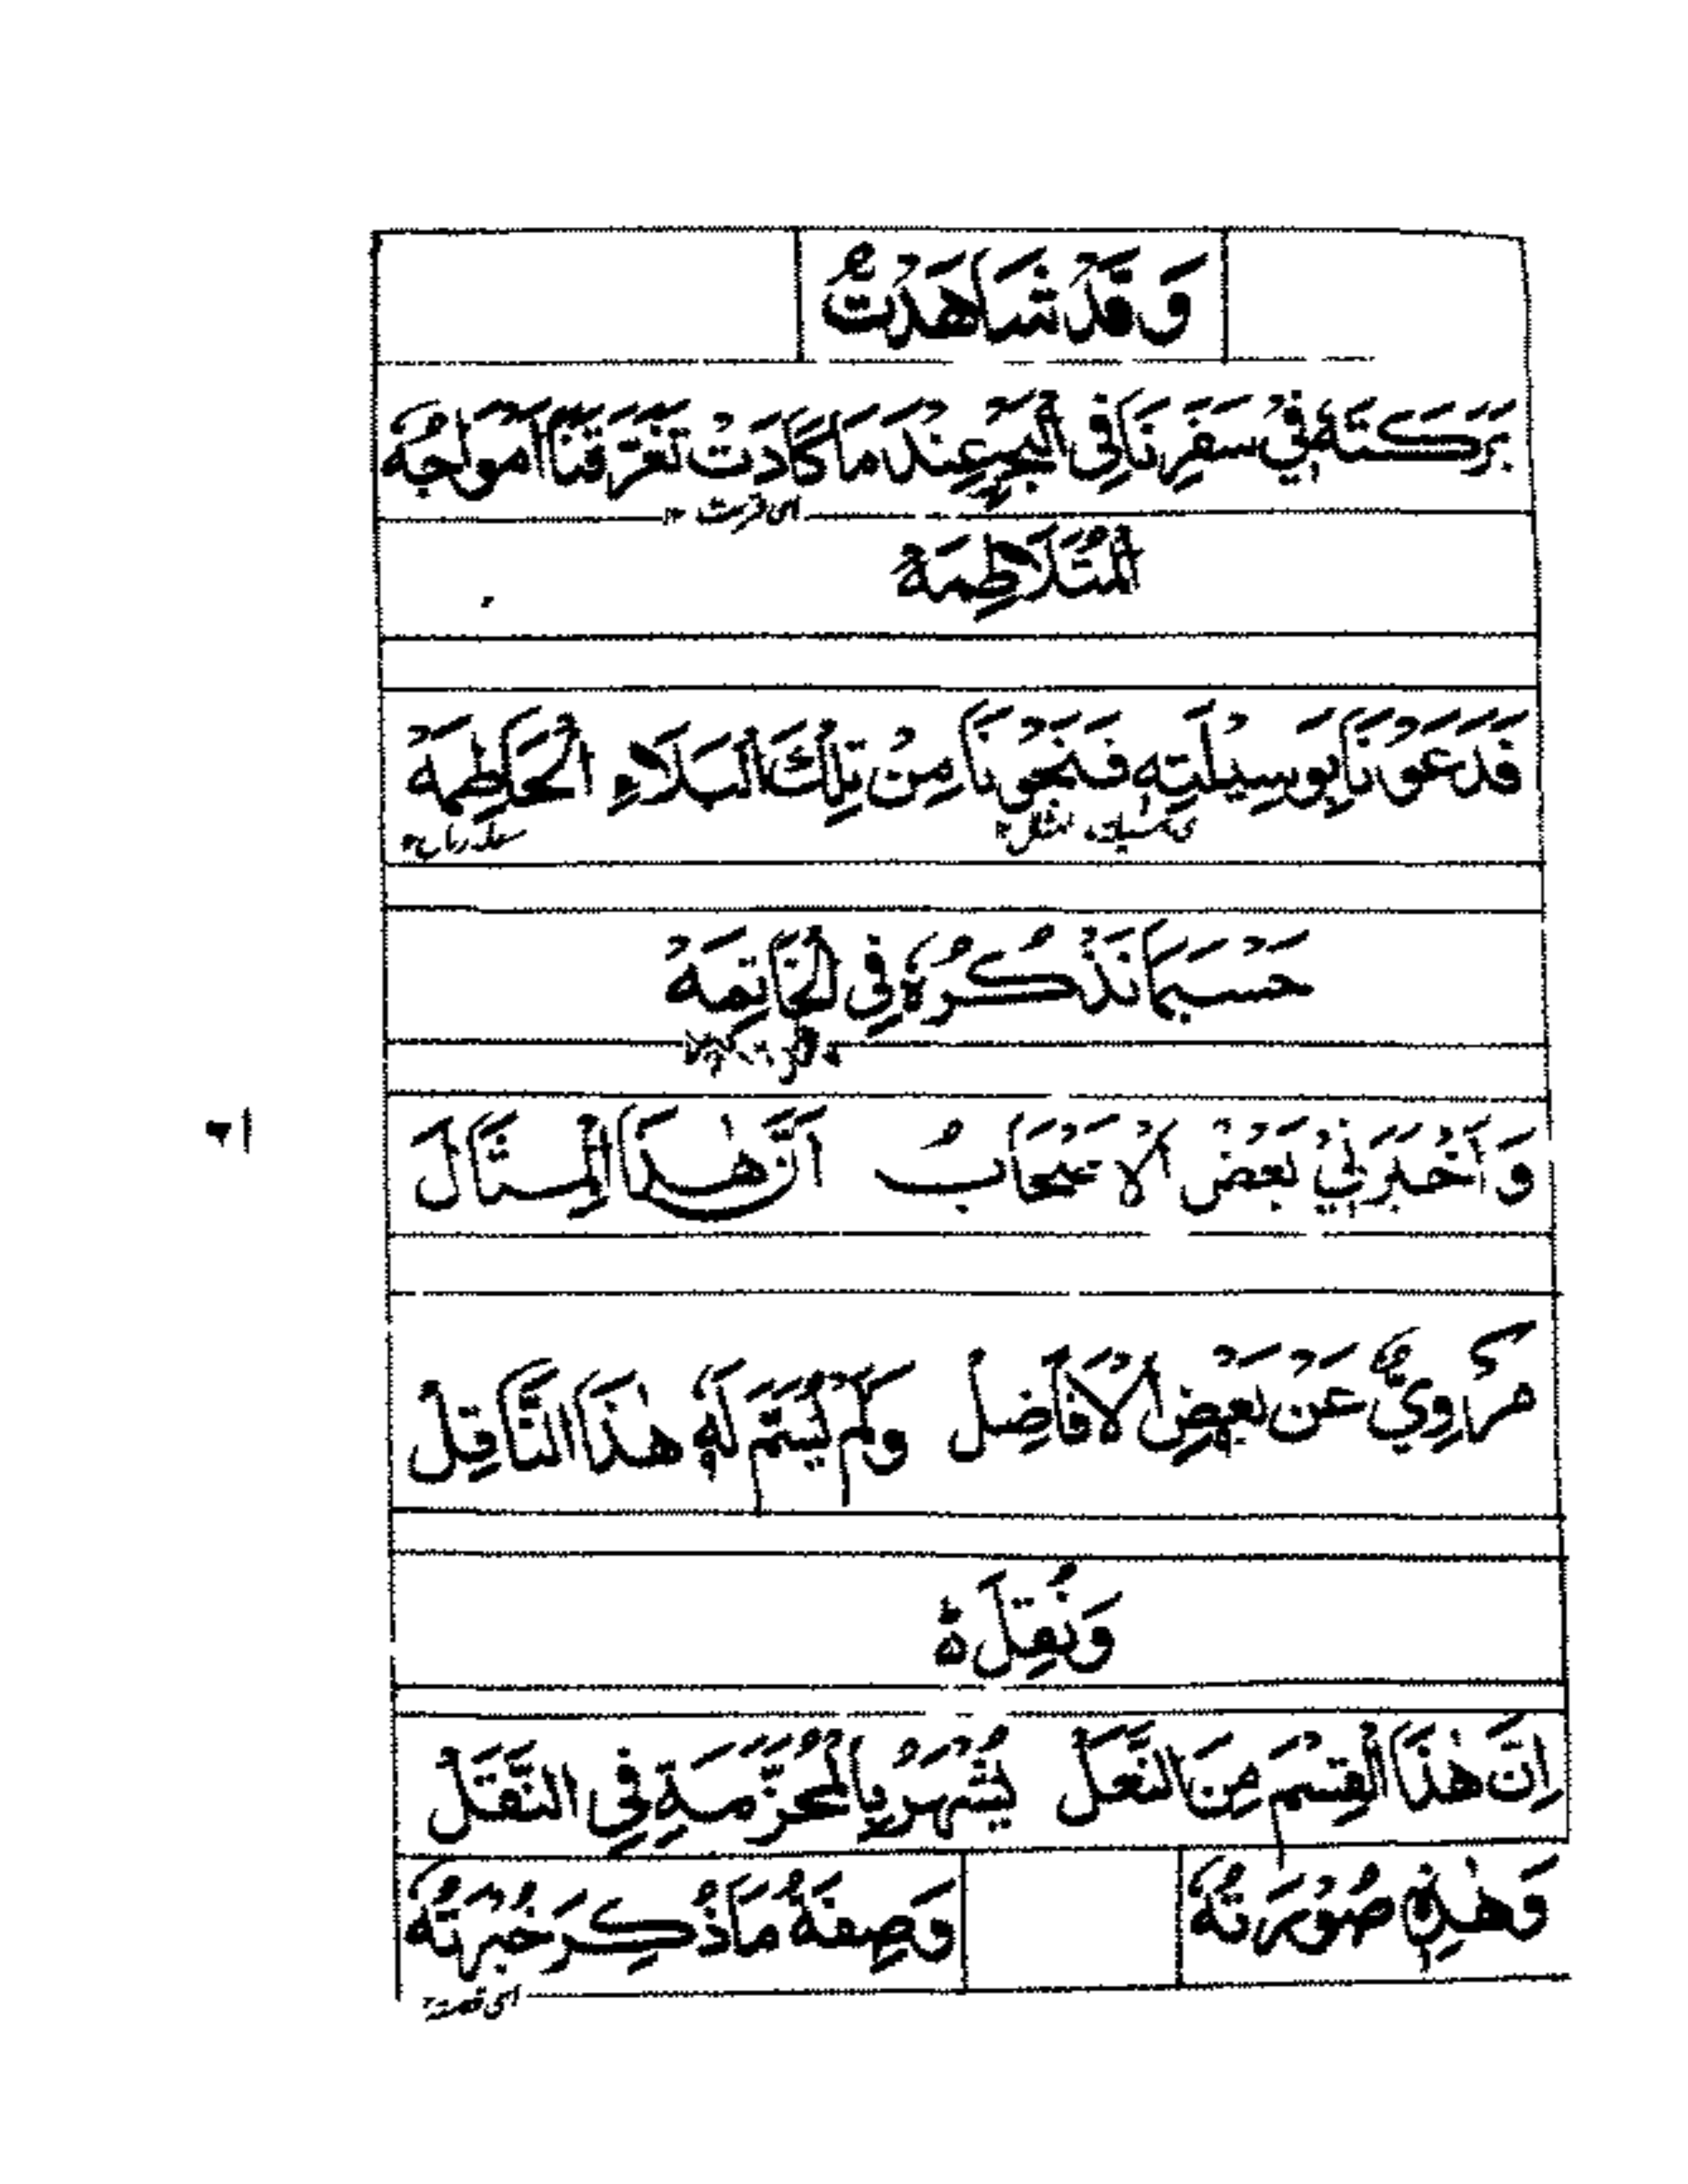 وَقَدْ شَاهَدْتُ
بَرَكَتَهٗ فِيْ سَفَرِنَا فِي الْبَحْرِ عِنْدَ مَا كَادَتْ تُغَرِّقُنَا اَمْوَاجُهٗ
اي قربت ١٢
الْمُتَلَاطِمَةُ
فَدَعَوْنَا بِوَسِيْلَتِهٖ فَنَجَوْنَا مِنْ تِلْكَ الْبَلَاءِ الْحَاطِمَةُ
حَسْبَمَا نَذْكُرُهٗ فِي الْخَاتِمَةُ
وَاَخْبَرَنِيْ بَعْضُ الْاَصْحَابُ اَنَّ هٰذَا الْمِثَالَ
١٩
مَرْوِيٌّ عَنْ بَعْضِ الْاَفَاضِلُ وَلَمْ يُسَمَّ لَهٗ هٰذَا النَّاقِلُ
وَنُقِلَ ؕہ
اِنَّ هٰذَا الْقِسْمَ مِنَ النَّعْلُ يُشْهَرُ بِالْمُحَزَّمَةِ فِي النَّقَلُ
وَهٰذِهٖ صُوْرَتُهٗ وَصِفَةُ مَا ذُكِرَ خُبْرَتُهٗ